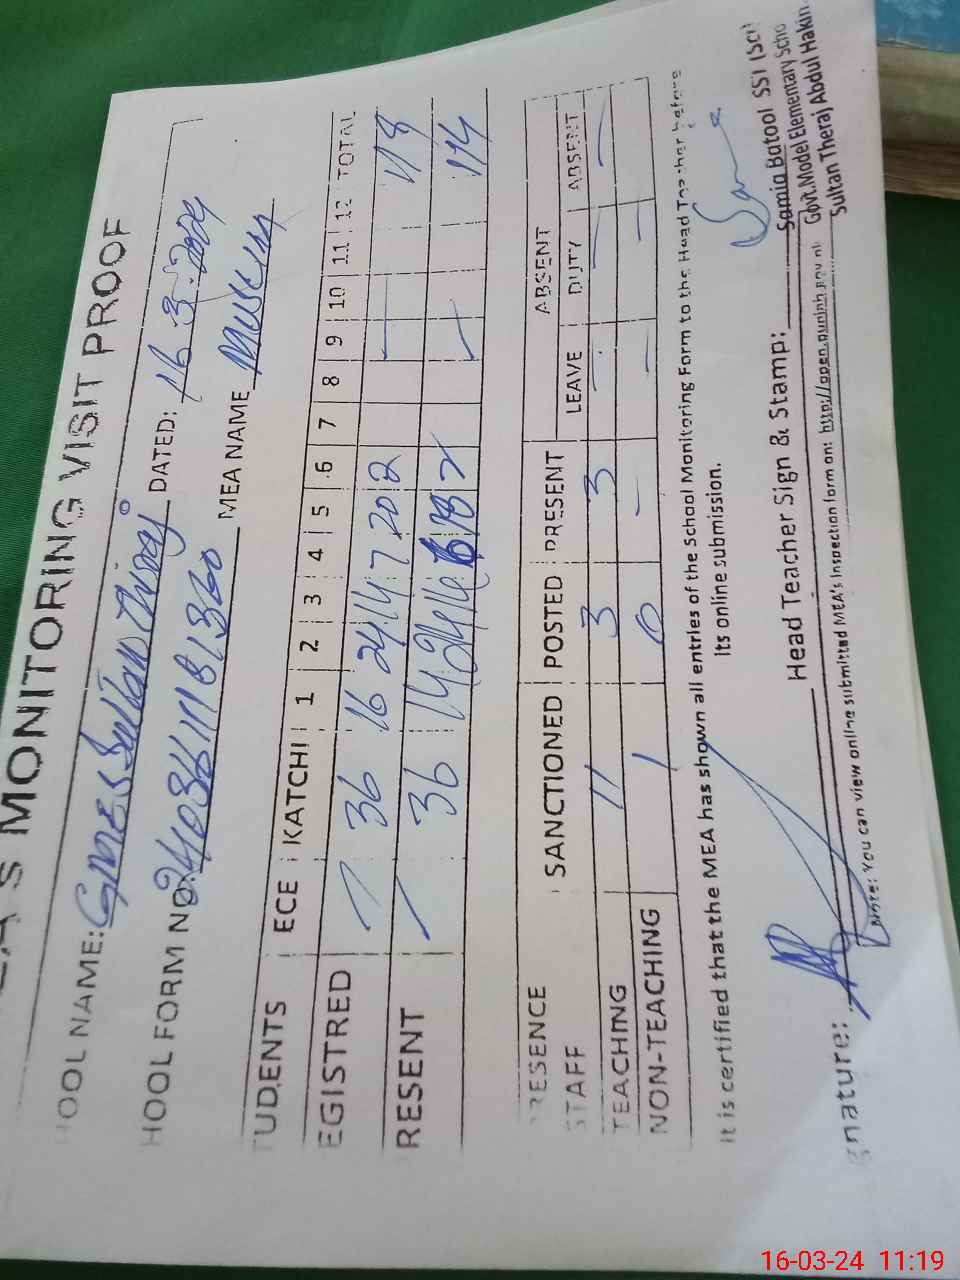 MONITORING VISIT PROOF
HOOL NAME: GMES Sultan DATED: 16.3.2024
HOOL FORM NO: MEA NAME
TUDENTS ECE KATCHI 1 2 3 4 5 6 7 8 9 10 11 12 TOTAL
EGISTRED 36 16 24 14 7 20 2 118
RESENT 36 14 24 14 2 114
RESENCE STAFF SANCTIONED POSTED PRESENT ABSENT
LEAVE DUTY ABSENT
TEACHING 11 3 3 — — —
NON-TEACHING 1 0 — — —
It is certified that the MEA has shown all entries of the School Monitoring Form to the Head Teacher before
Its online submission.
gnature: Head Teacher Sign & Stamp:
Samia Batool SST (Sci)
Govt.Model Elementary Scho
Sultan Theraj Abdul Hakim
Note: You can view online submitted MEA's Inspection form on: http://open.punjab.gov.pk
16-03-24 11:19